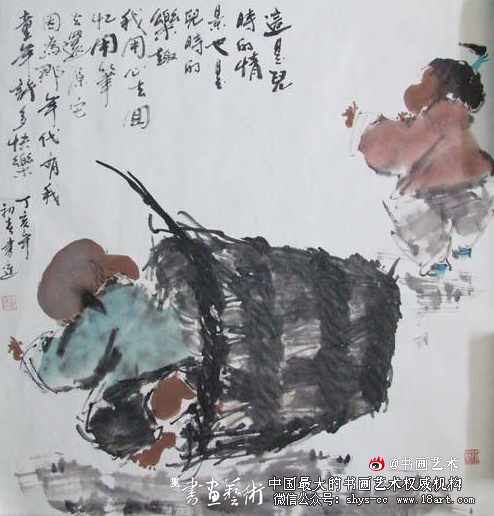 這是兒
時的情
景也是
兒時的
樂趣
我用心去回
忆用筆
去還原它
因為那年代有我
童年許多快樂
丁亥年
初春
@书画艺术
書畫藝術
中国最大的书画艺术权威机构
微信公众号：shys-cc www.18art.com